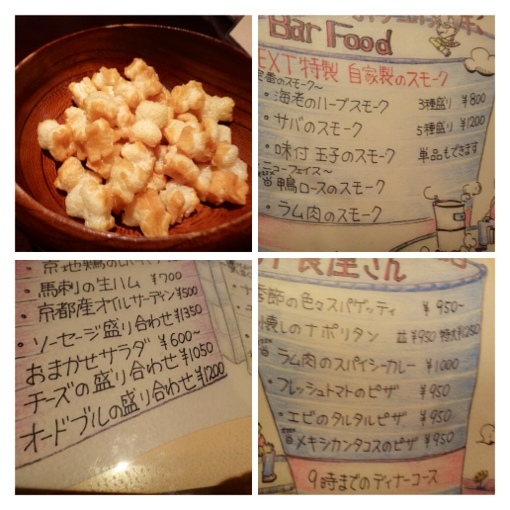 Bar Food
EXT特製 自家製のスモーク
定番のスモーク～
・海老のハーブスモーク 3種盛り ¥800
・サバのスモーク 5種盛り ¥1200
・味付玉子のスモーク 単品もできます
ニューフェイス～
・鴨ロースのスモーク
・ラム肉のスモーク
・馬刺の生ハム ¥700
・京都産オイルサーディン ¥500
・ソーセージ盛り合わせ ¥1350
おまかせサラダ ¥600～
チーズの盛り合わせ ¥1050
オードブルの盛り合わせ ¥1200
食屋さん
季節の色々スパゲッティ ¥950～
懐しのナポリタン 並¥950 特大¥1250
・ラム肉のスパイシーカレー ¥1000
・フレッシュトマトのピザ ¥950
・エビのタルタルピザ ¥950
メキシカンタコスのピザ ¥950
9時までのディナーコース